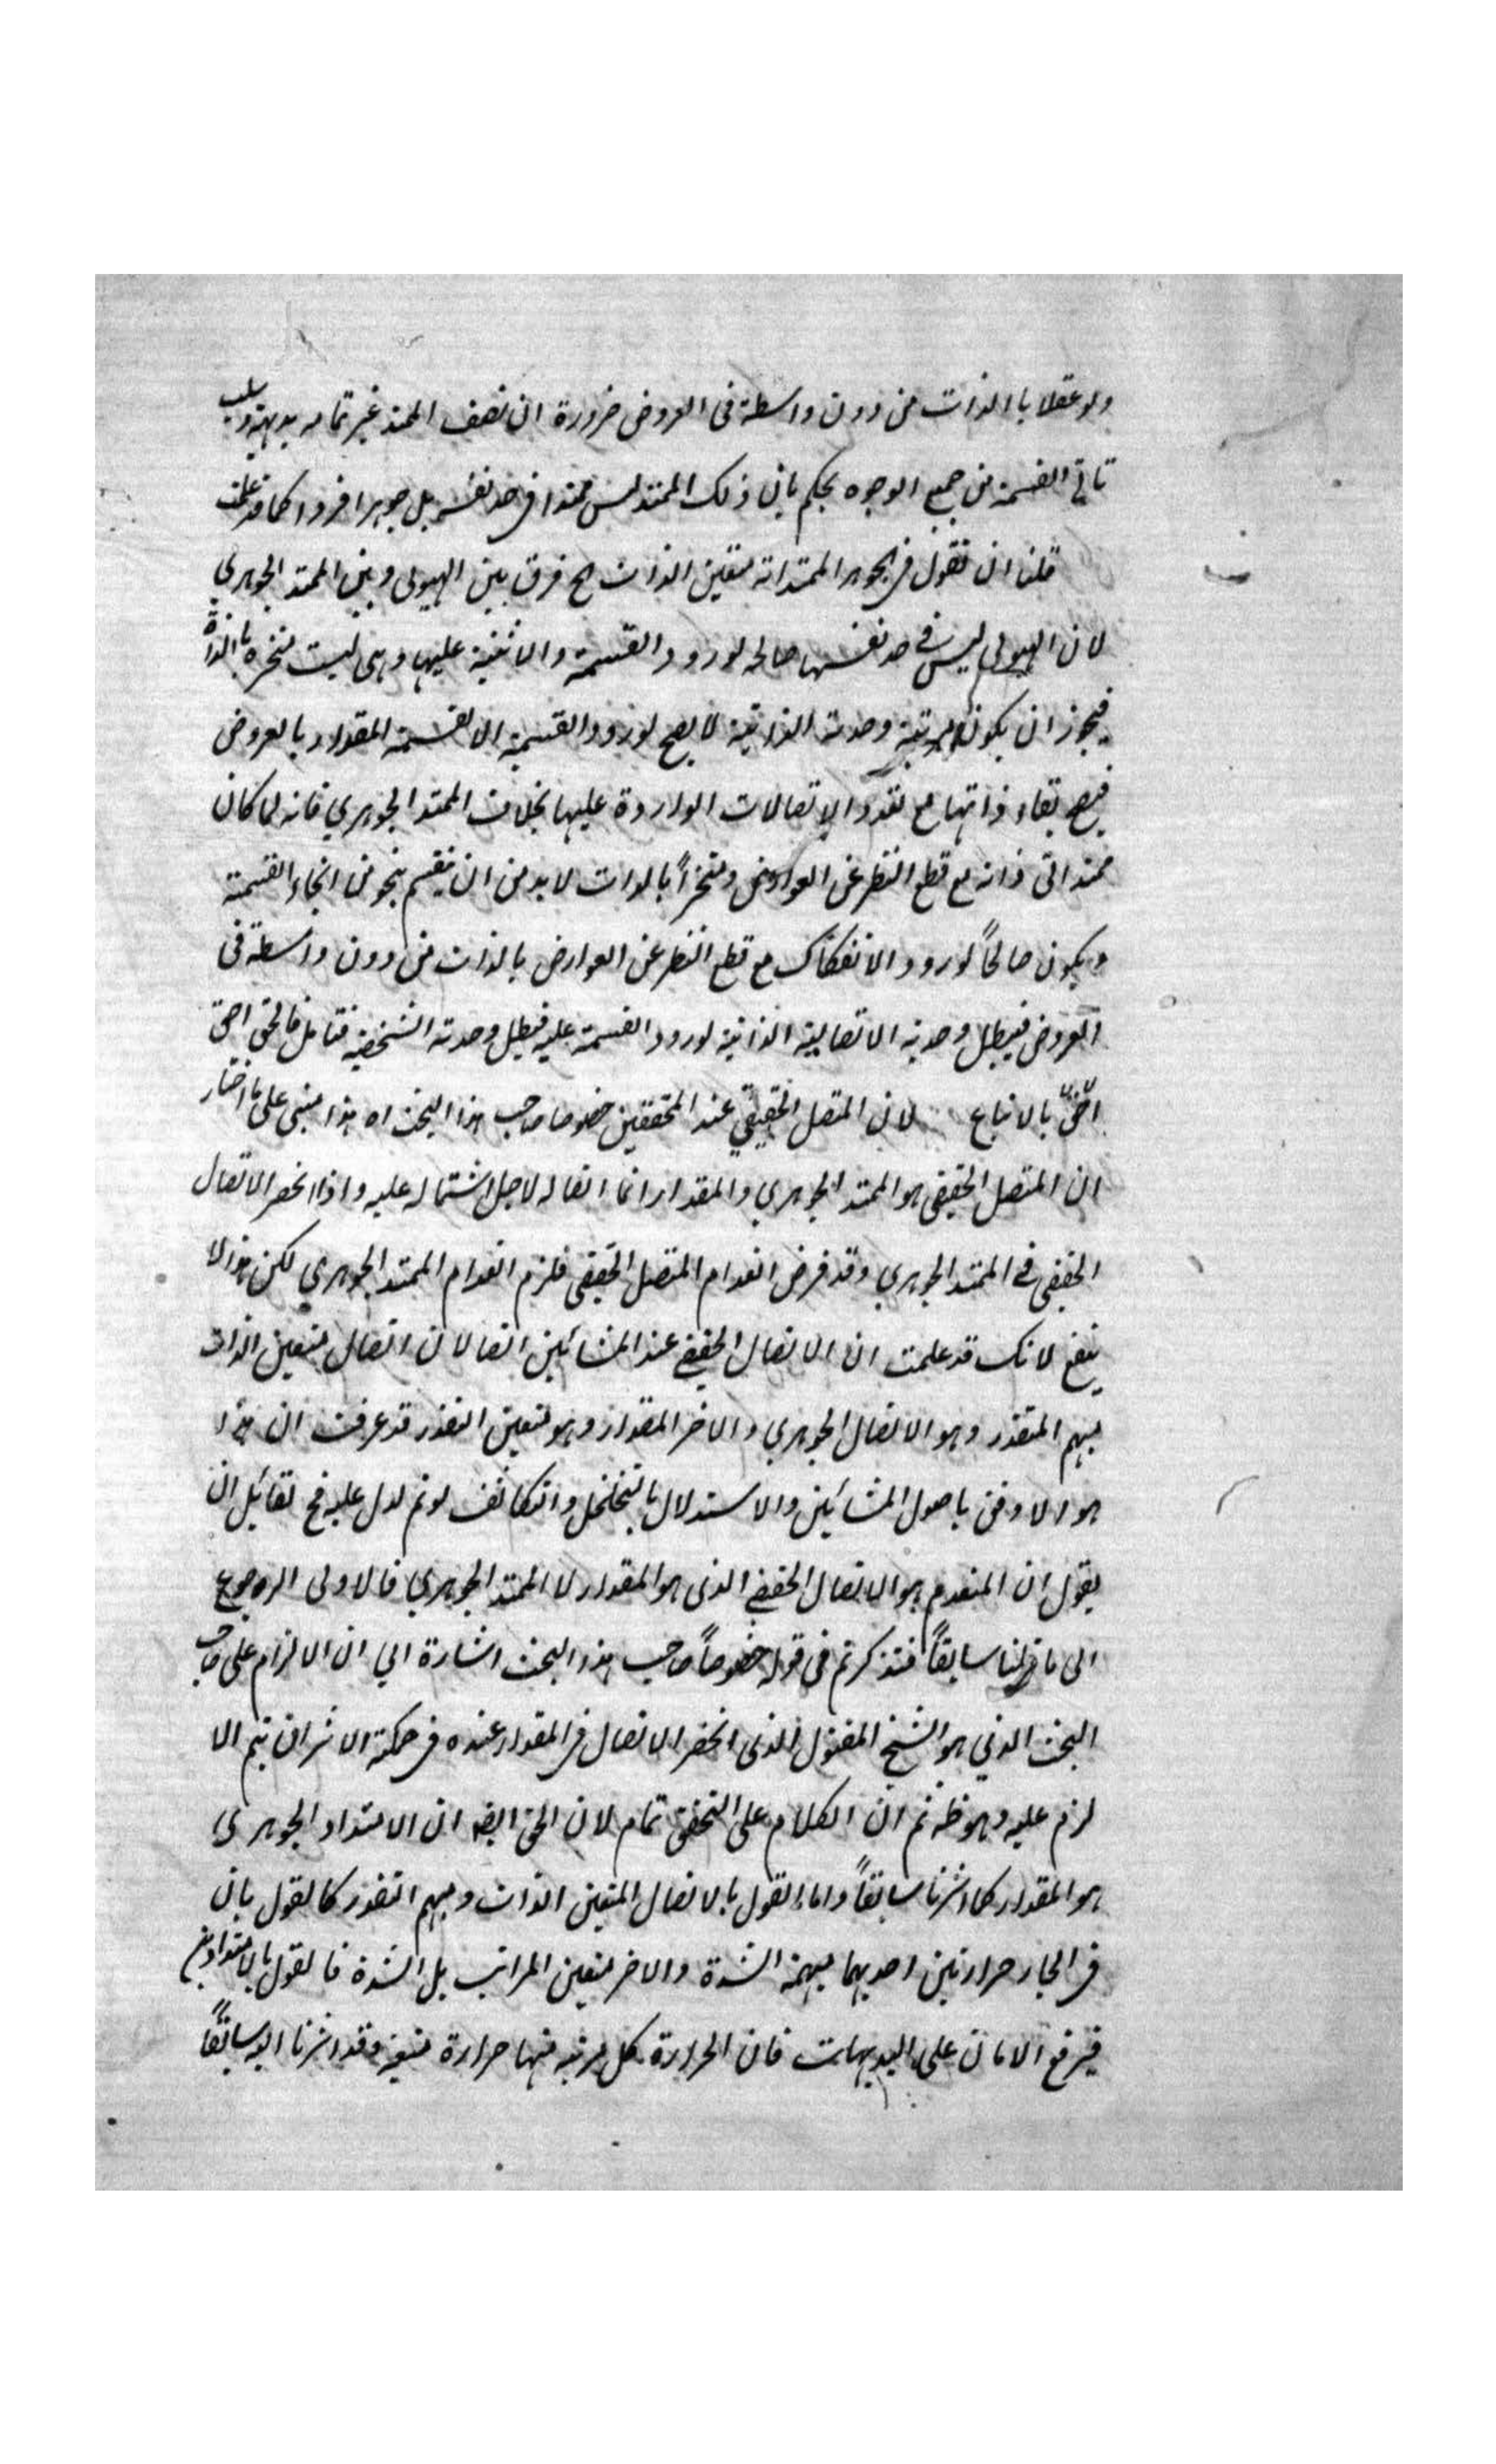 ولو عقلا بالذات من دون واسطة فى العروض ضرورة ان نصف الممتد غير تمامه بديهة وسلب
تاتى القسمة من جميع الوجوه يحكم بان ذلك الممتد ليس ممتدا فى حد نفسه بل جوهرا فردا كما قد علمت
قلنا ان نقول فى الجوهر الممتد انه متعين الذات ح فرق بين الهيولى وبين الممتد الجوهري
لان الهيولى ليس فى حد نفسها صالحه لورود القسمة والاثنينية عليها وهى ليست متجزه بالذات
فيجوز ان يكون وحدته الذاتية لا يصح لورود القسمة الا لقسمة المقدار بالعروض
فيصح بقاء ذاتها مع تعدد الاتصالات الواردة عليها بخلاف الممتد الجوهري فانه لما كان
ممتدا فى ذاته مع قطع النظر عن العوارض ومتجزأً بالذات لا بد من ان ينقسم بنحو من انحاء القسمة
ويكون صالحاً لورود الانفكاك مع قطع النظر عن العوارض بالذات من دون واسطة فى
العروض فيبطل وحدته الاتصالية الذاتية لورود القسمة عليه فيبطل وحدته الشخصية فتامل فالحق احق
بالاتباع لان المتصل الحقيقي عند المحققين خصوصا صاحب هذا البحث اه هذا مبنى على ما اختار
ان المتصل الحقيقى هو الممتد الجوهري والمقدار انما اتصاله لاجل اشتماله عليه واذا انحصر الاتصال
الحقيقى فى الممتد الجوهري وقد فرض انعدام المتصل الحقيقى فلزم انعدام الممتد الجوهري لكن هذا لا
ينفع لانك قد علمت ان الاتصال الحقيقى عند المشائين اتصالان اتصال متعين الذات
مبهم المتقدر وهو الاتصال الجوهري والاخر المقدار وهو متعين التقدر قد عرفت ان هذا
هو الاوفق باصول المشائين والاستدلال بالتخلخل والتكاثف لو تم لدل عليه فح لقائل ان
يقول ان المنعدم هو الاتصال الحقيقى الذى هو المقدار لا الممتد الجوهري فالاولى الرجوع
الى ما قلنا سابقاً فتذكر ثم فى قوله خصوصاً صاحب هذا البحث اشارة الي ان الالزام على صاحب
البحث الذي هو الشيخ المقتول الذى انحصر الاتصال فى المقدار عنده فى حكمة الاشراق يتم الا
لزم عليه وهو ظ ثم ان الكلام على التحقيق تمام لان الحق ايضا ان الامتداد الجوهري
هو المقدار كما اشرنا سابقاً واما القول بالاتصال المتعين الذات ومبهم التقدر كالقول بان
فى الحار حرارتين احديهما مبهمة الشدة والاخر متعين المراتب بل الشدة فالقول بالامتدادين
فيرفع الامان على البديهات فان الحرارة كل مرتبه منها حرارة متعينه وقد اشرنا اليه سابقاً